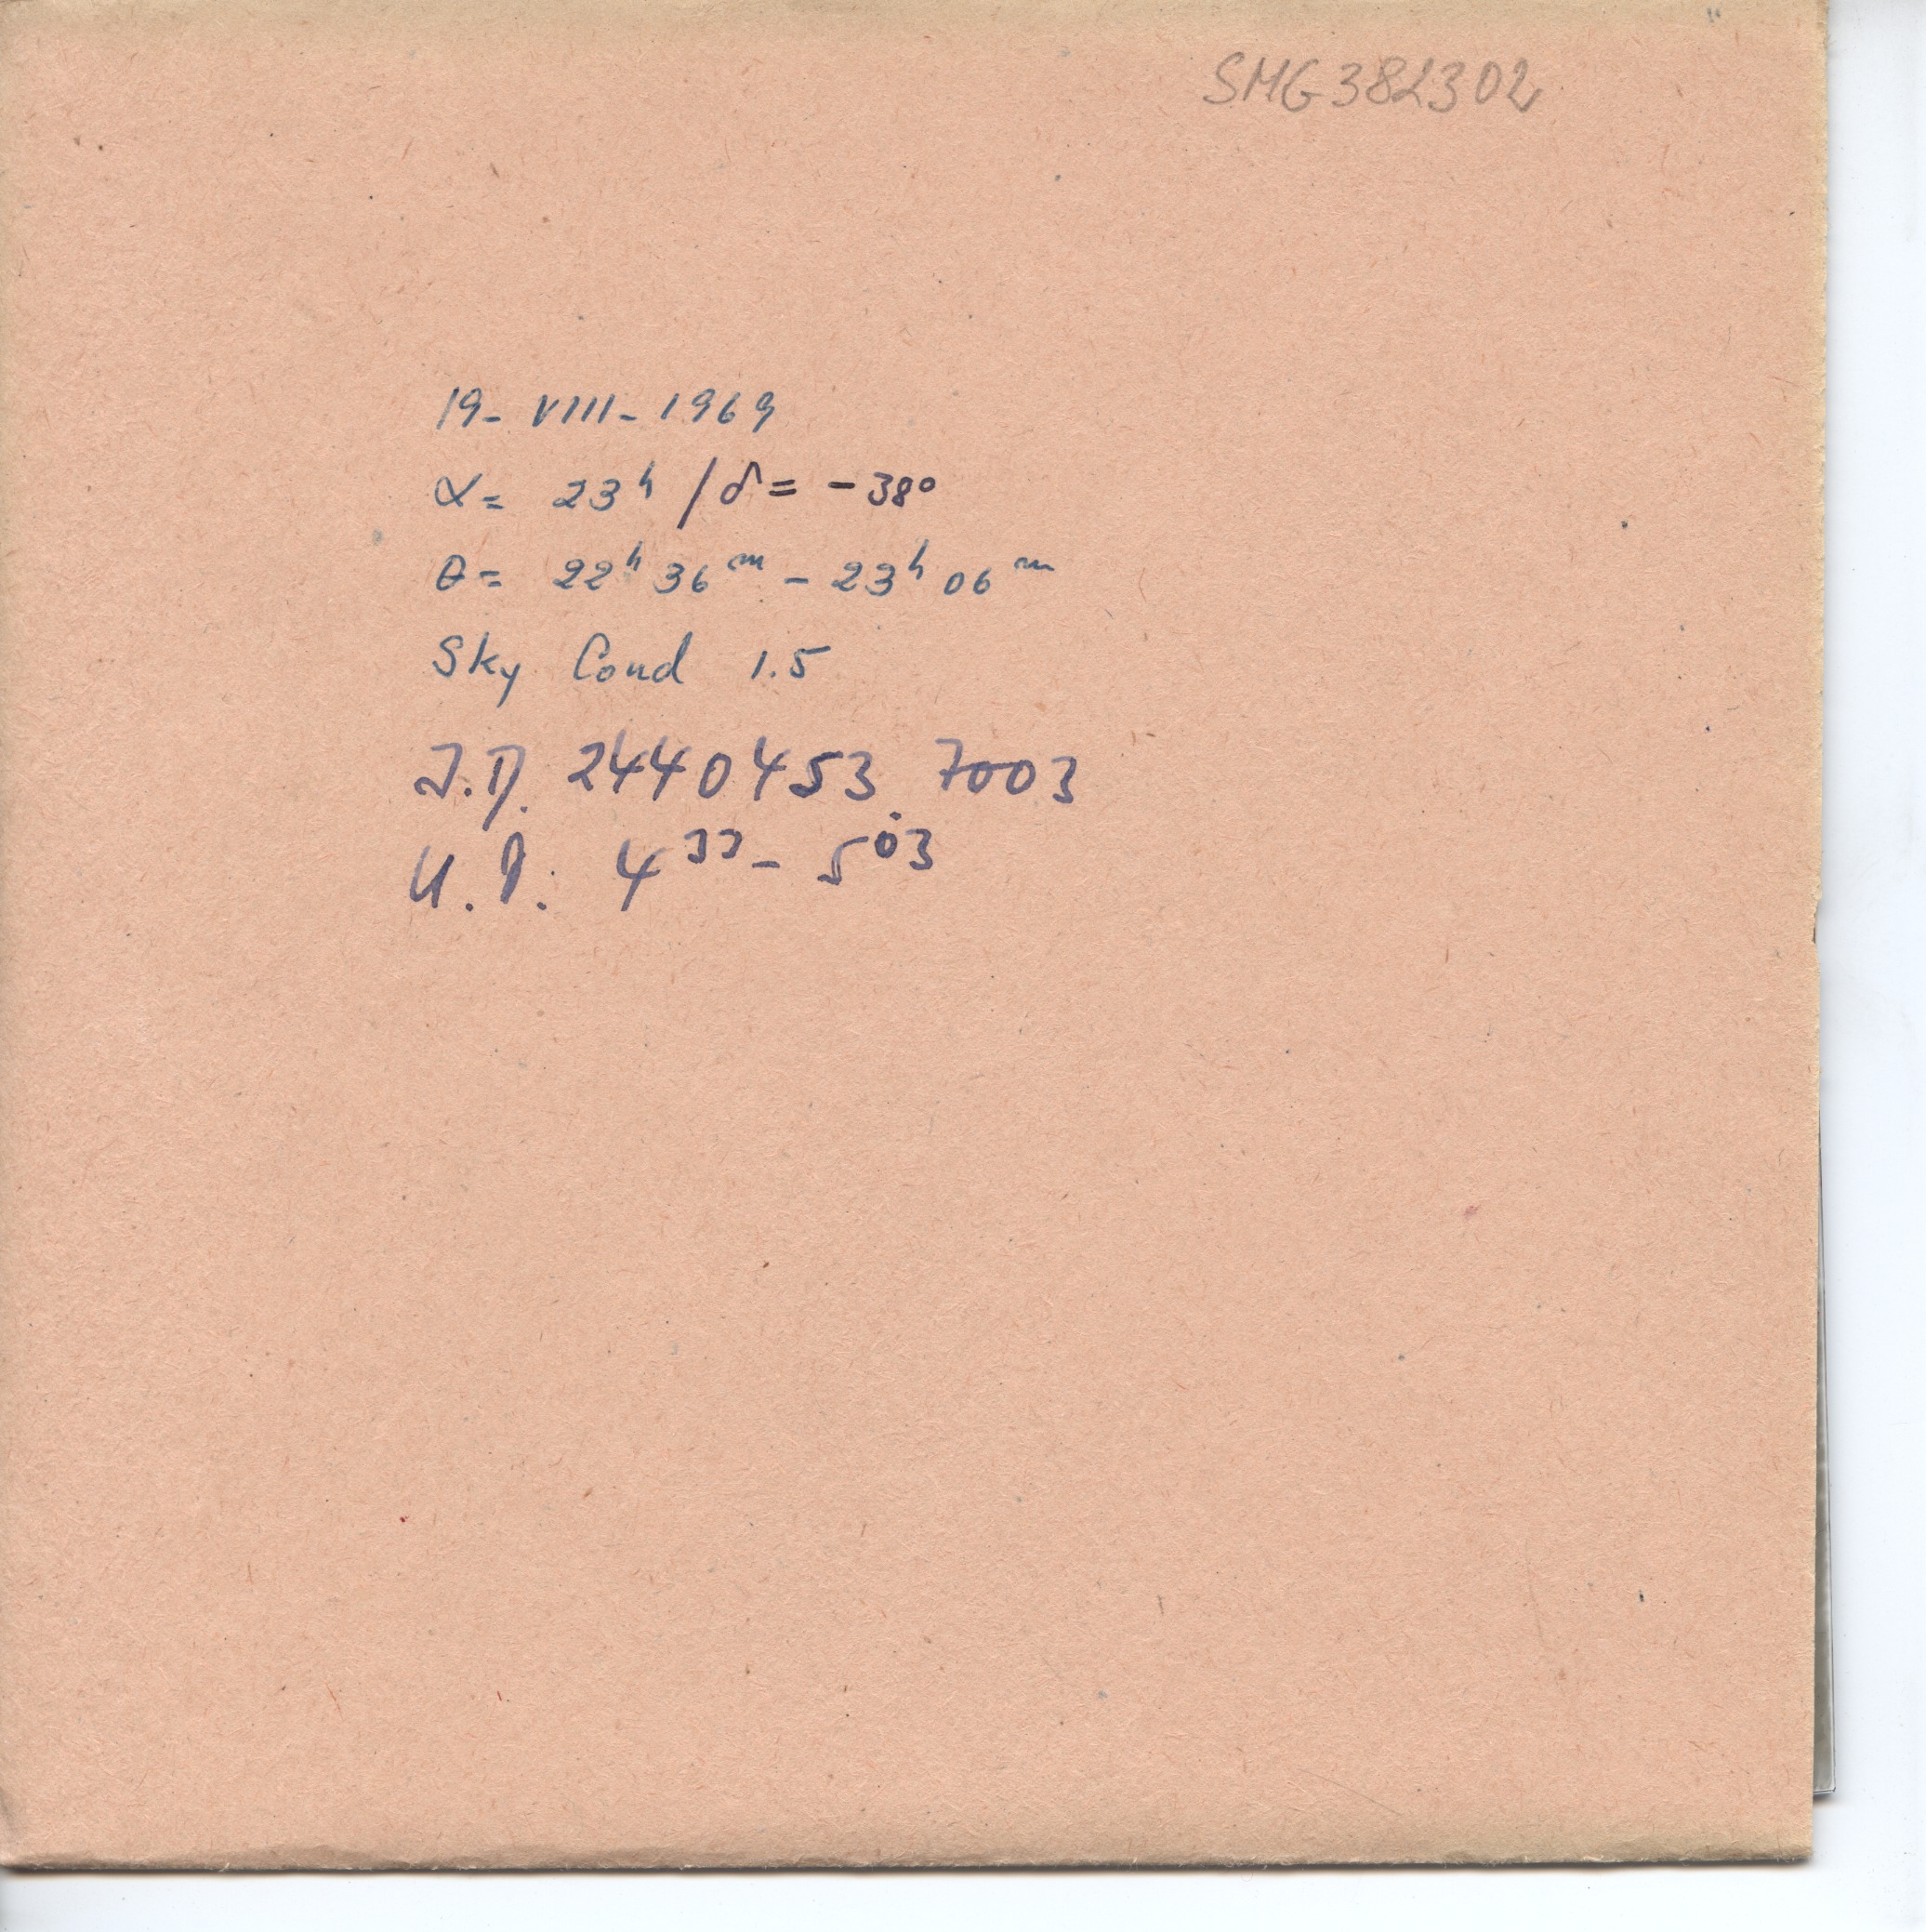 SMG 382302
19- VIII- 1969
α= 23ʰ /δ= -38°
θ= 22ʰ 36ᵐ - 23ʰ 06ᵐ
Sky Cond 1.5
J.D. 2440453.7003
4³³- 5⁰³